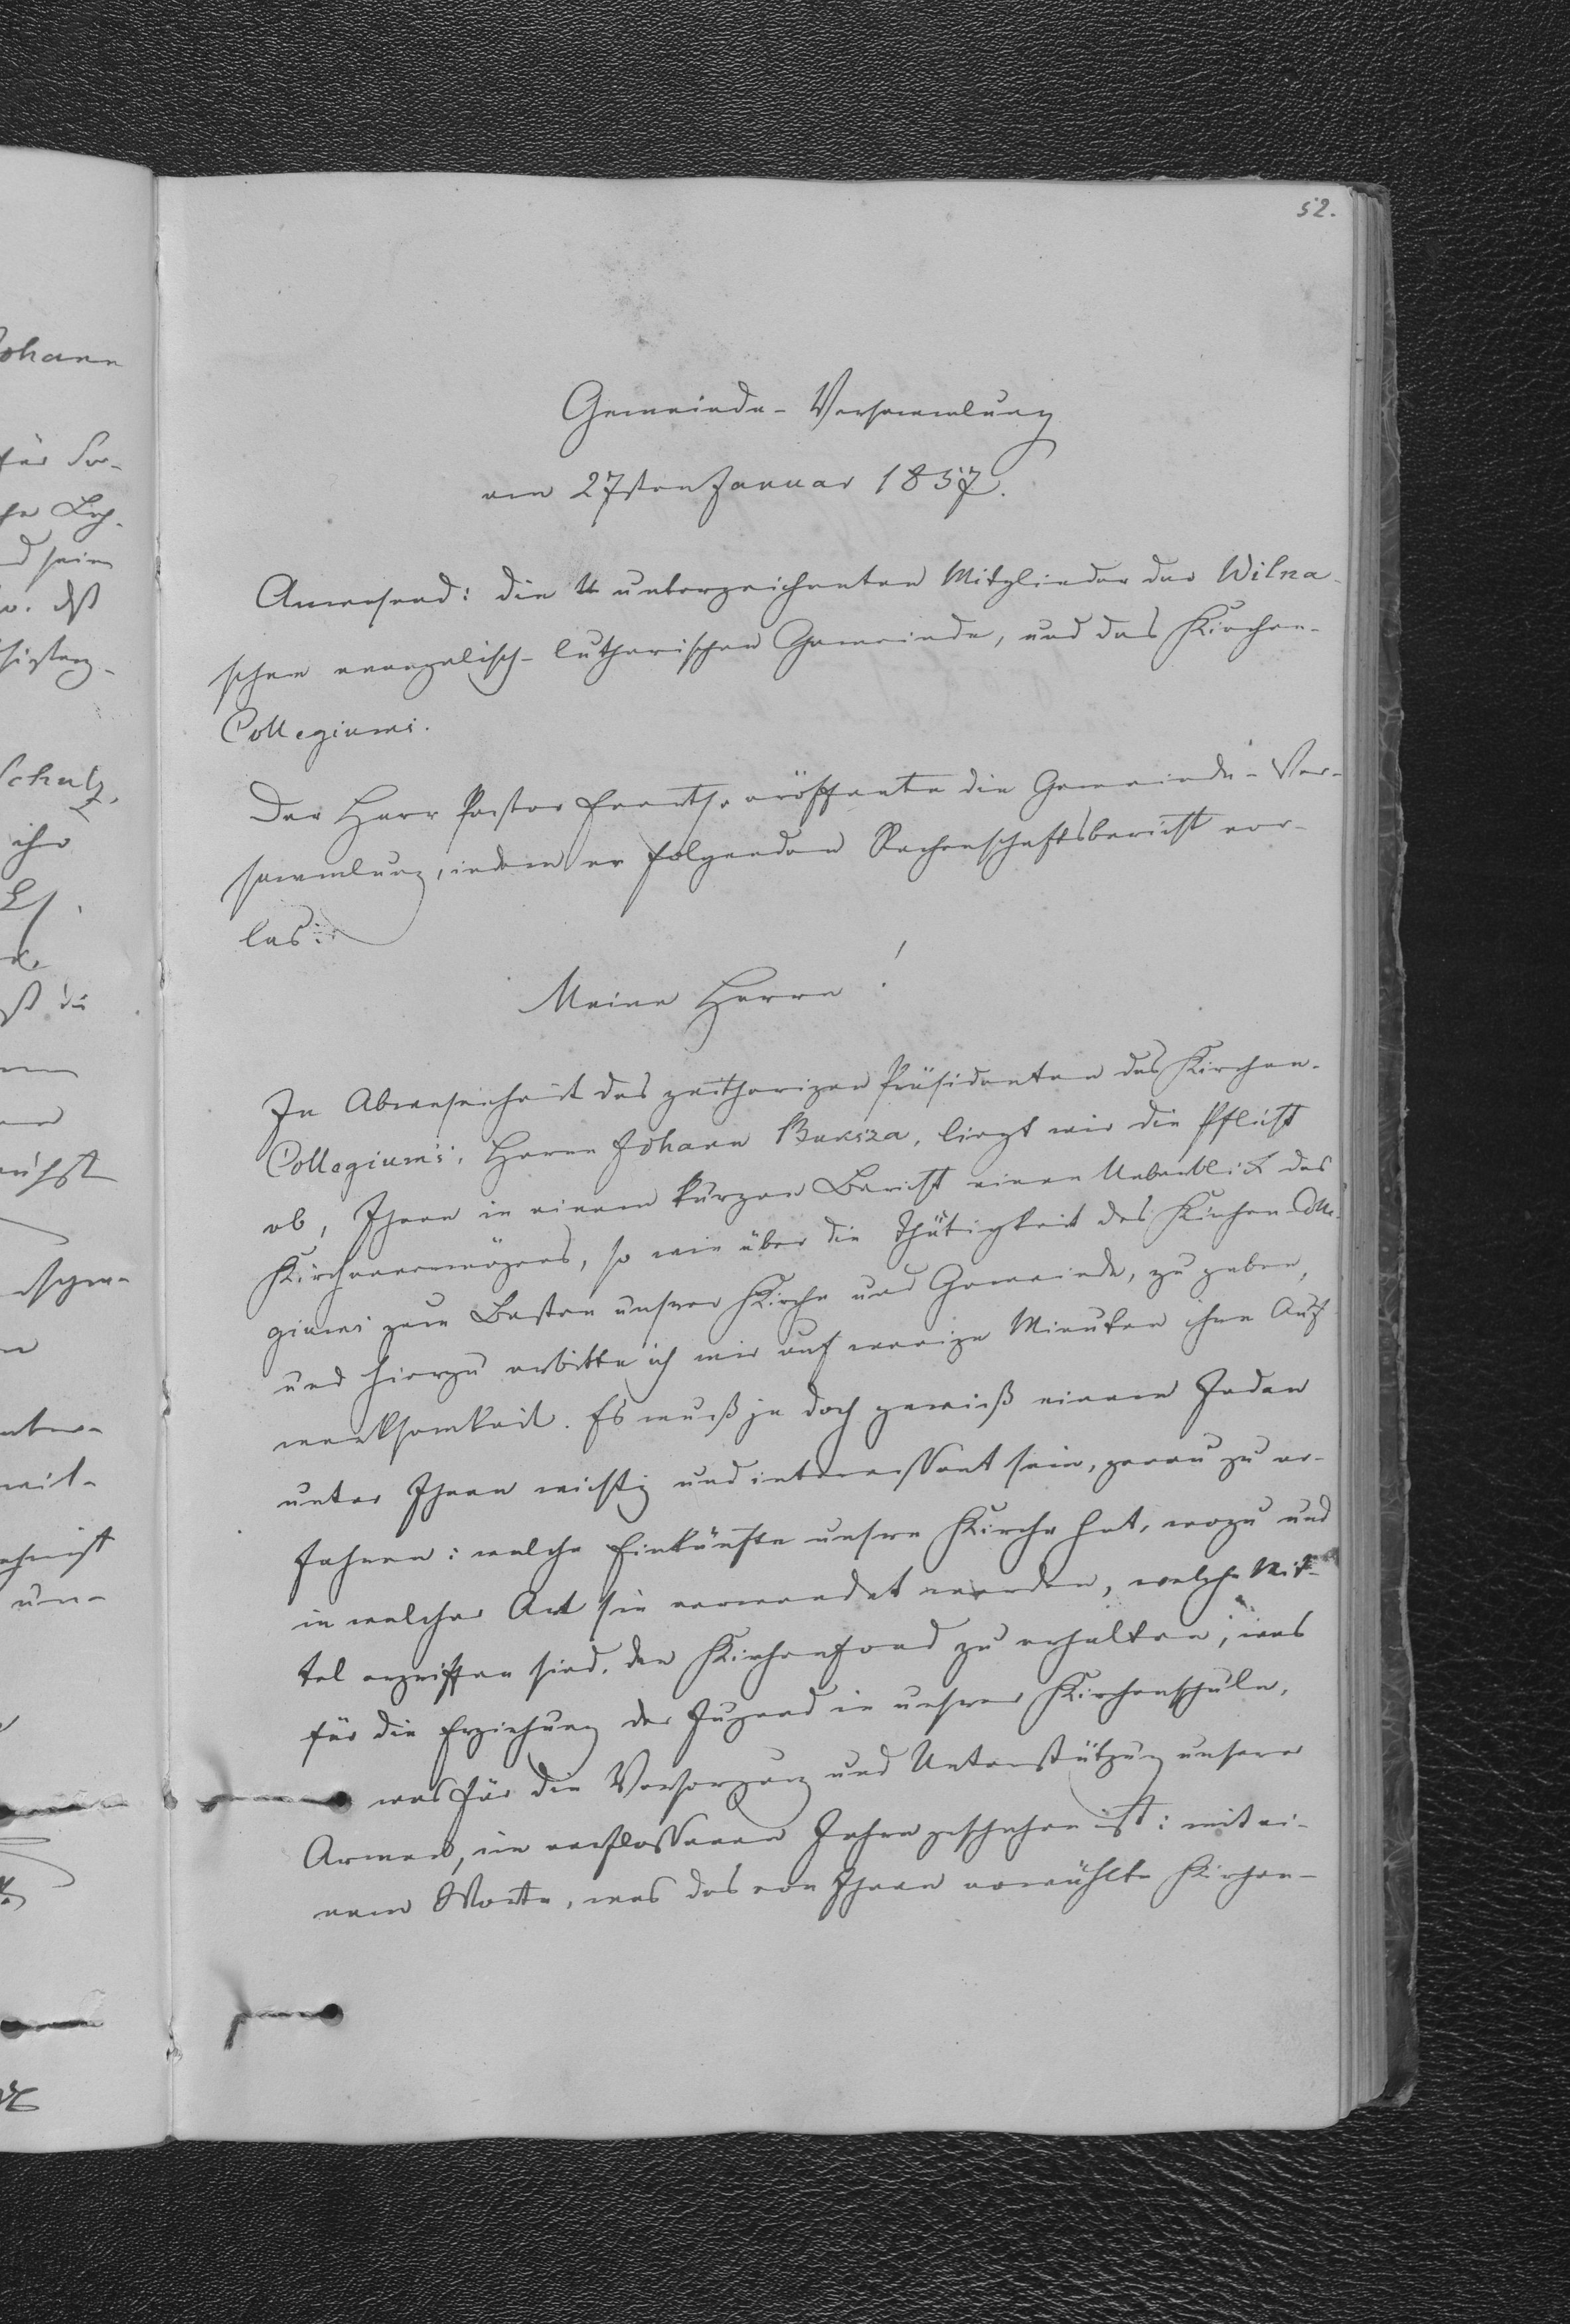 52.
Gemeinde-Versammlung
am 27sten Januar 1857.
Anwesend: die unterzeichneten Mitglieder der Wilna-
schen evangelisch-lutherischen Gemeinde, und das Kirchen-
Collegiums.
Der Herr Pastor eröffnete die Gemeinde-Ver-
sammlung, indem er folgenden Rechenschaftsbericht vor-
las:
Meine Herrn!
In Abwesenheit des zeitherigen Präsidenten des Kirchen-
Collegiums, Herrn Johann Buksza, liegt mir die Pflicht
ob, Ihnen in einem kurzen Bericht einen Ueberblick des
Kirchenvermögens, so wie über die Thätigkeit des Kirchen-Colle-
giums zum Besten unsrer Kirche und Gemeinde, zu geben,
und hierzu erbitte ich mir auf wenige Minuten ihre Auf-
merksamkeit. Es muß ja doch gewiß einem Jeden
unter Ihnen wichtig und interessant sein, genau zu er-
fahren: welche Einkünfte unsre Kirche hat, wozu und
in welcher Art sie verwendet werden, welche Mit-
tel ergriffen sind, den Kirchenfond zu erhalten; was
für die Erziehung der Jugend in unsrer Kirchenschule,
was für die Versorgung und Unterstützung unsrer
Armen, im verflossenen Jahre geschehen ist: mit ei-
nem Worte, was das von Ihnen erwählte Kirchen-